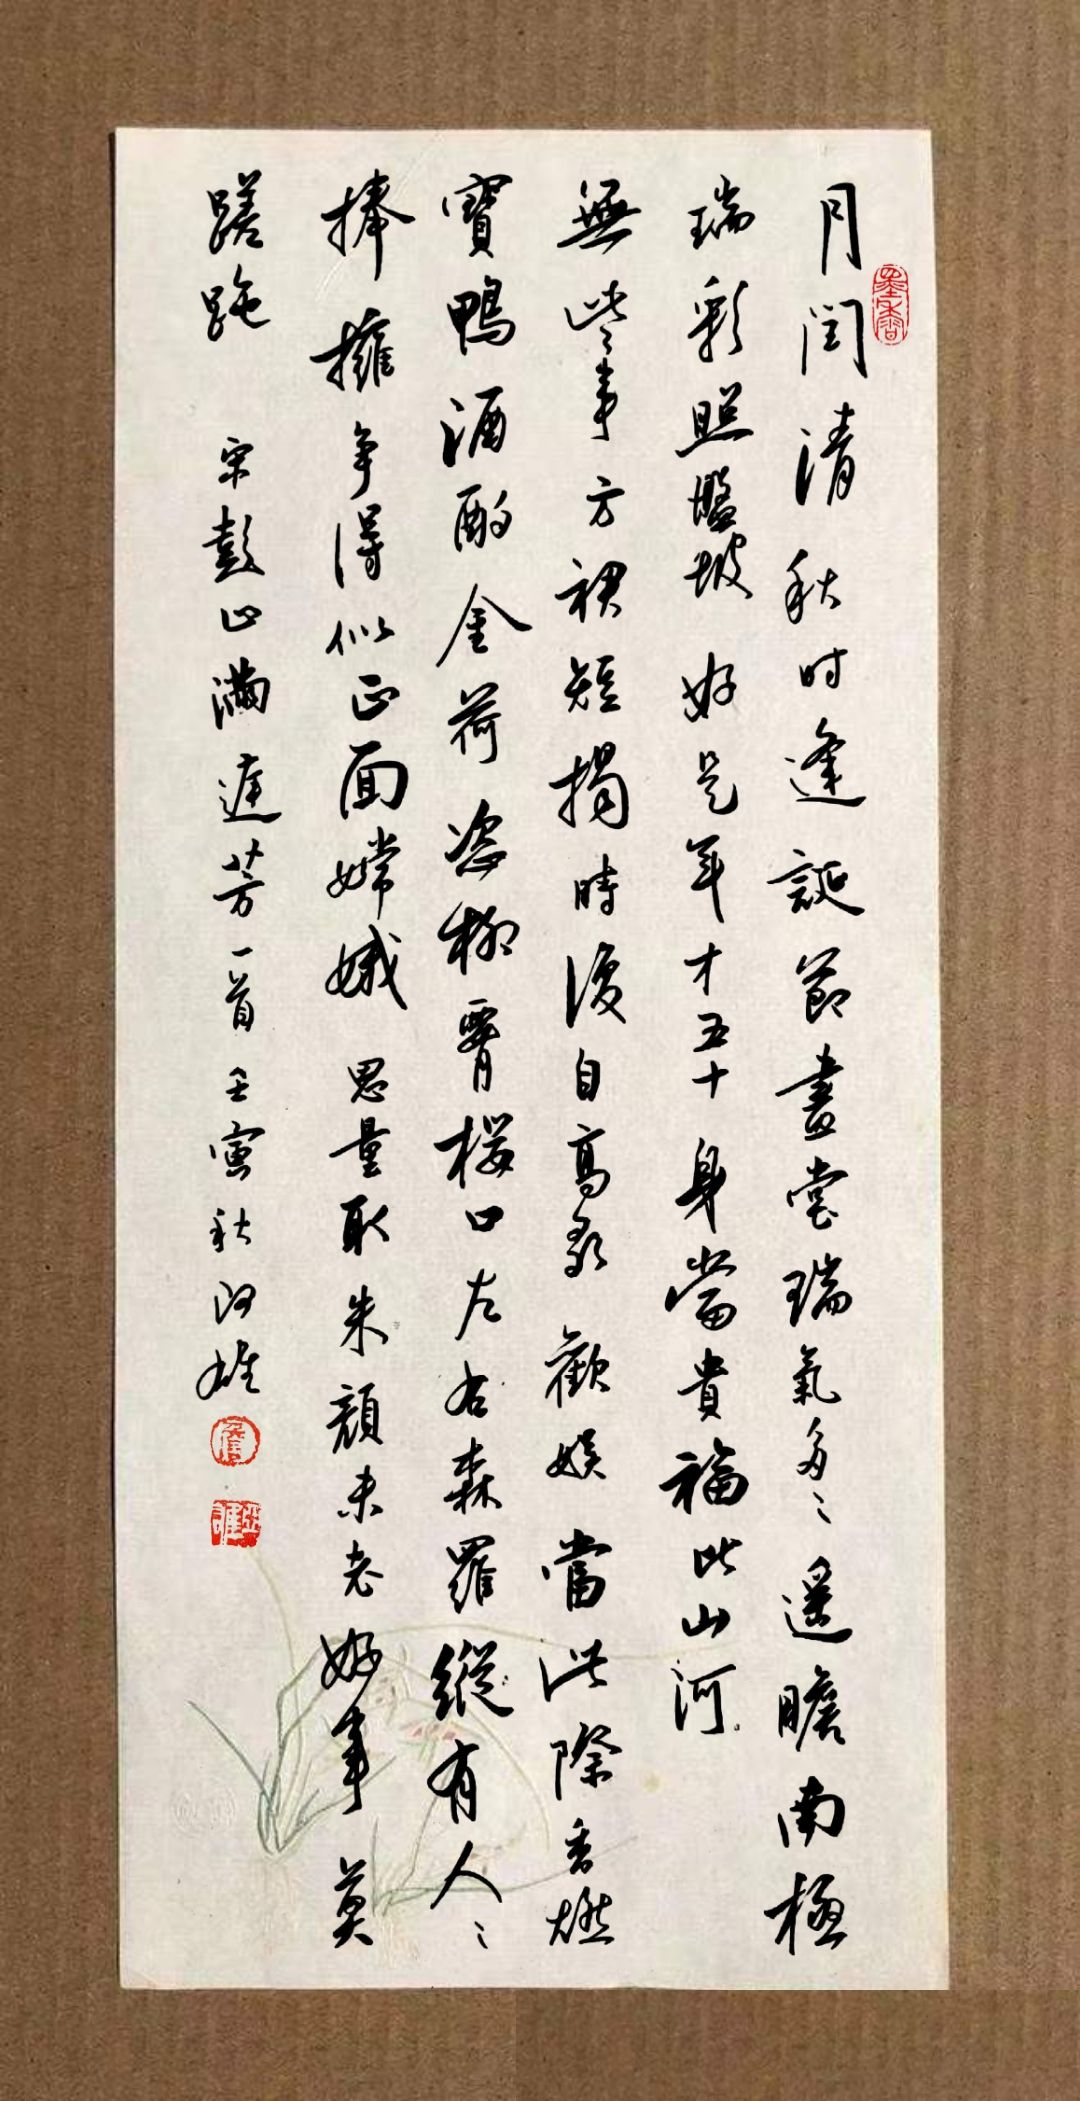 月閏清秋时逢誕節畫堂瑞氣多〻遥瞻南極
瑞彩照壏坡好是年才五十身當貴福比山河
無些事方裙短揭時復自高歌歡娱當此際香燃
寶鴨酒酌金荷恣柳腰樱口左右森羅縱有人〻
捧擁争得似正面嫦娥思量取朱顔未老好事莫
蹉跎 宋彭止滿庭芳一首壬寅秋阿雄
墨香